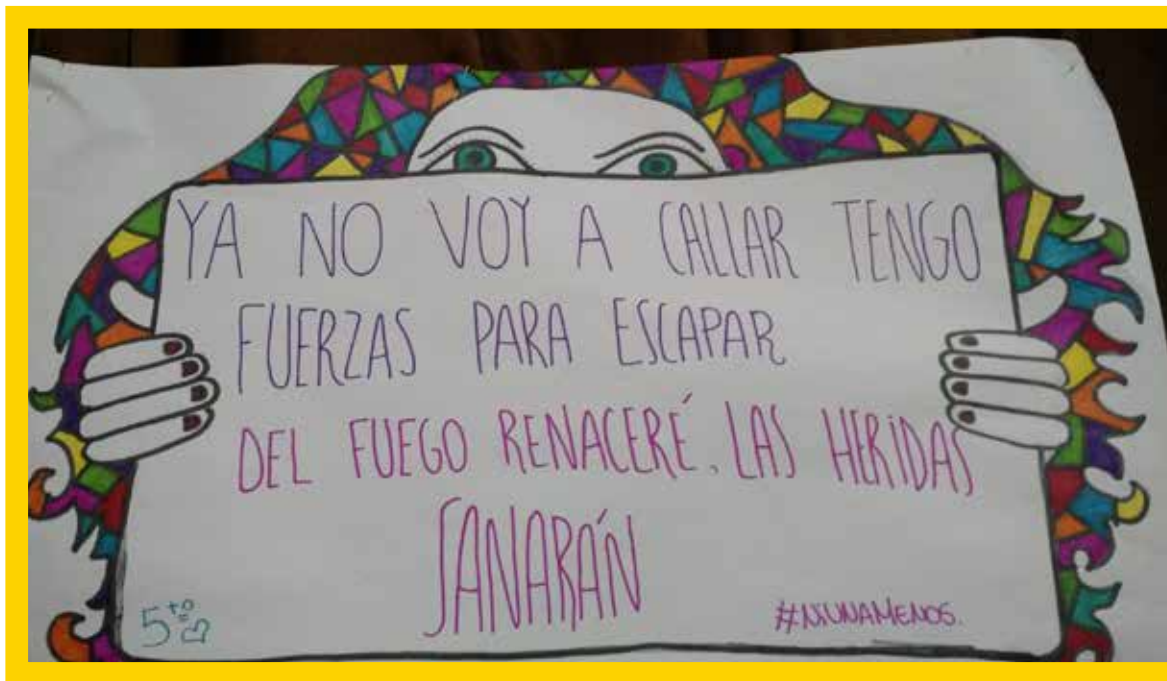 YA NO VOY A CALLAR TENGO
FUERZAS PARA ESCAPAR
DEL FUEGO RENACERÉ. LAS HERIDAS
SANARÁN
5to
#NIUNAMENOS.